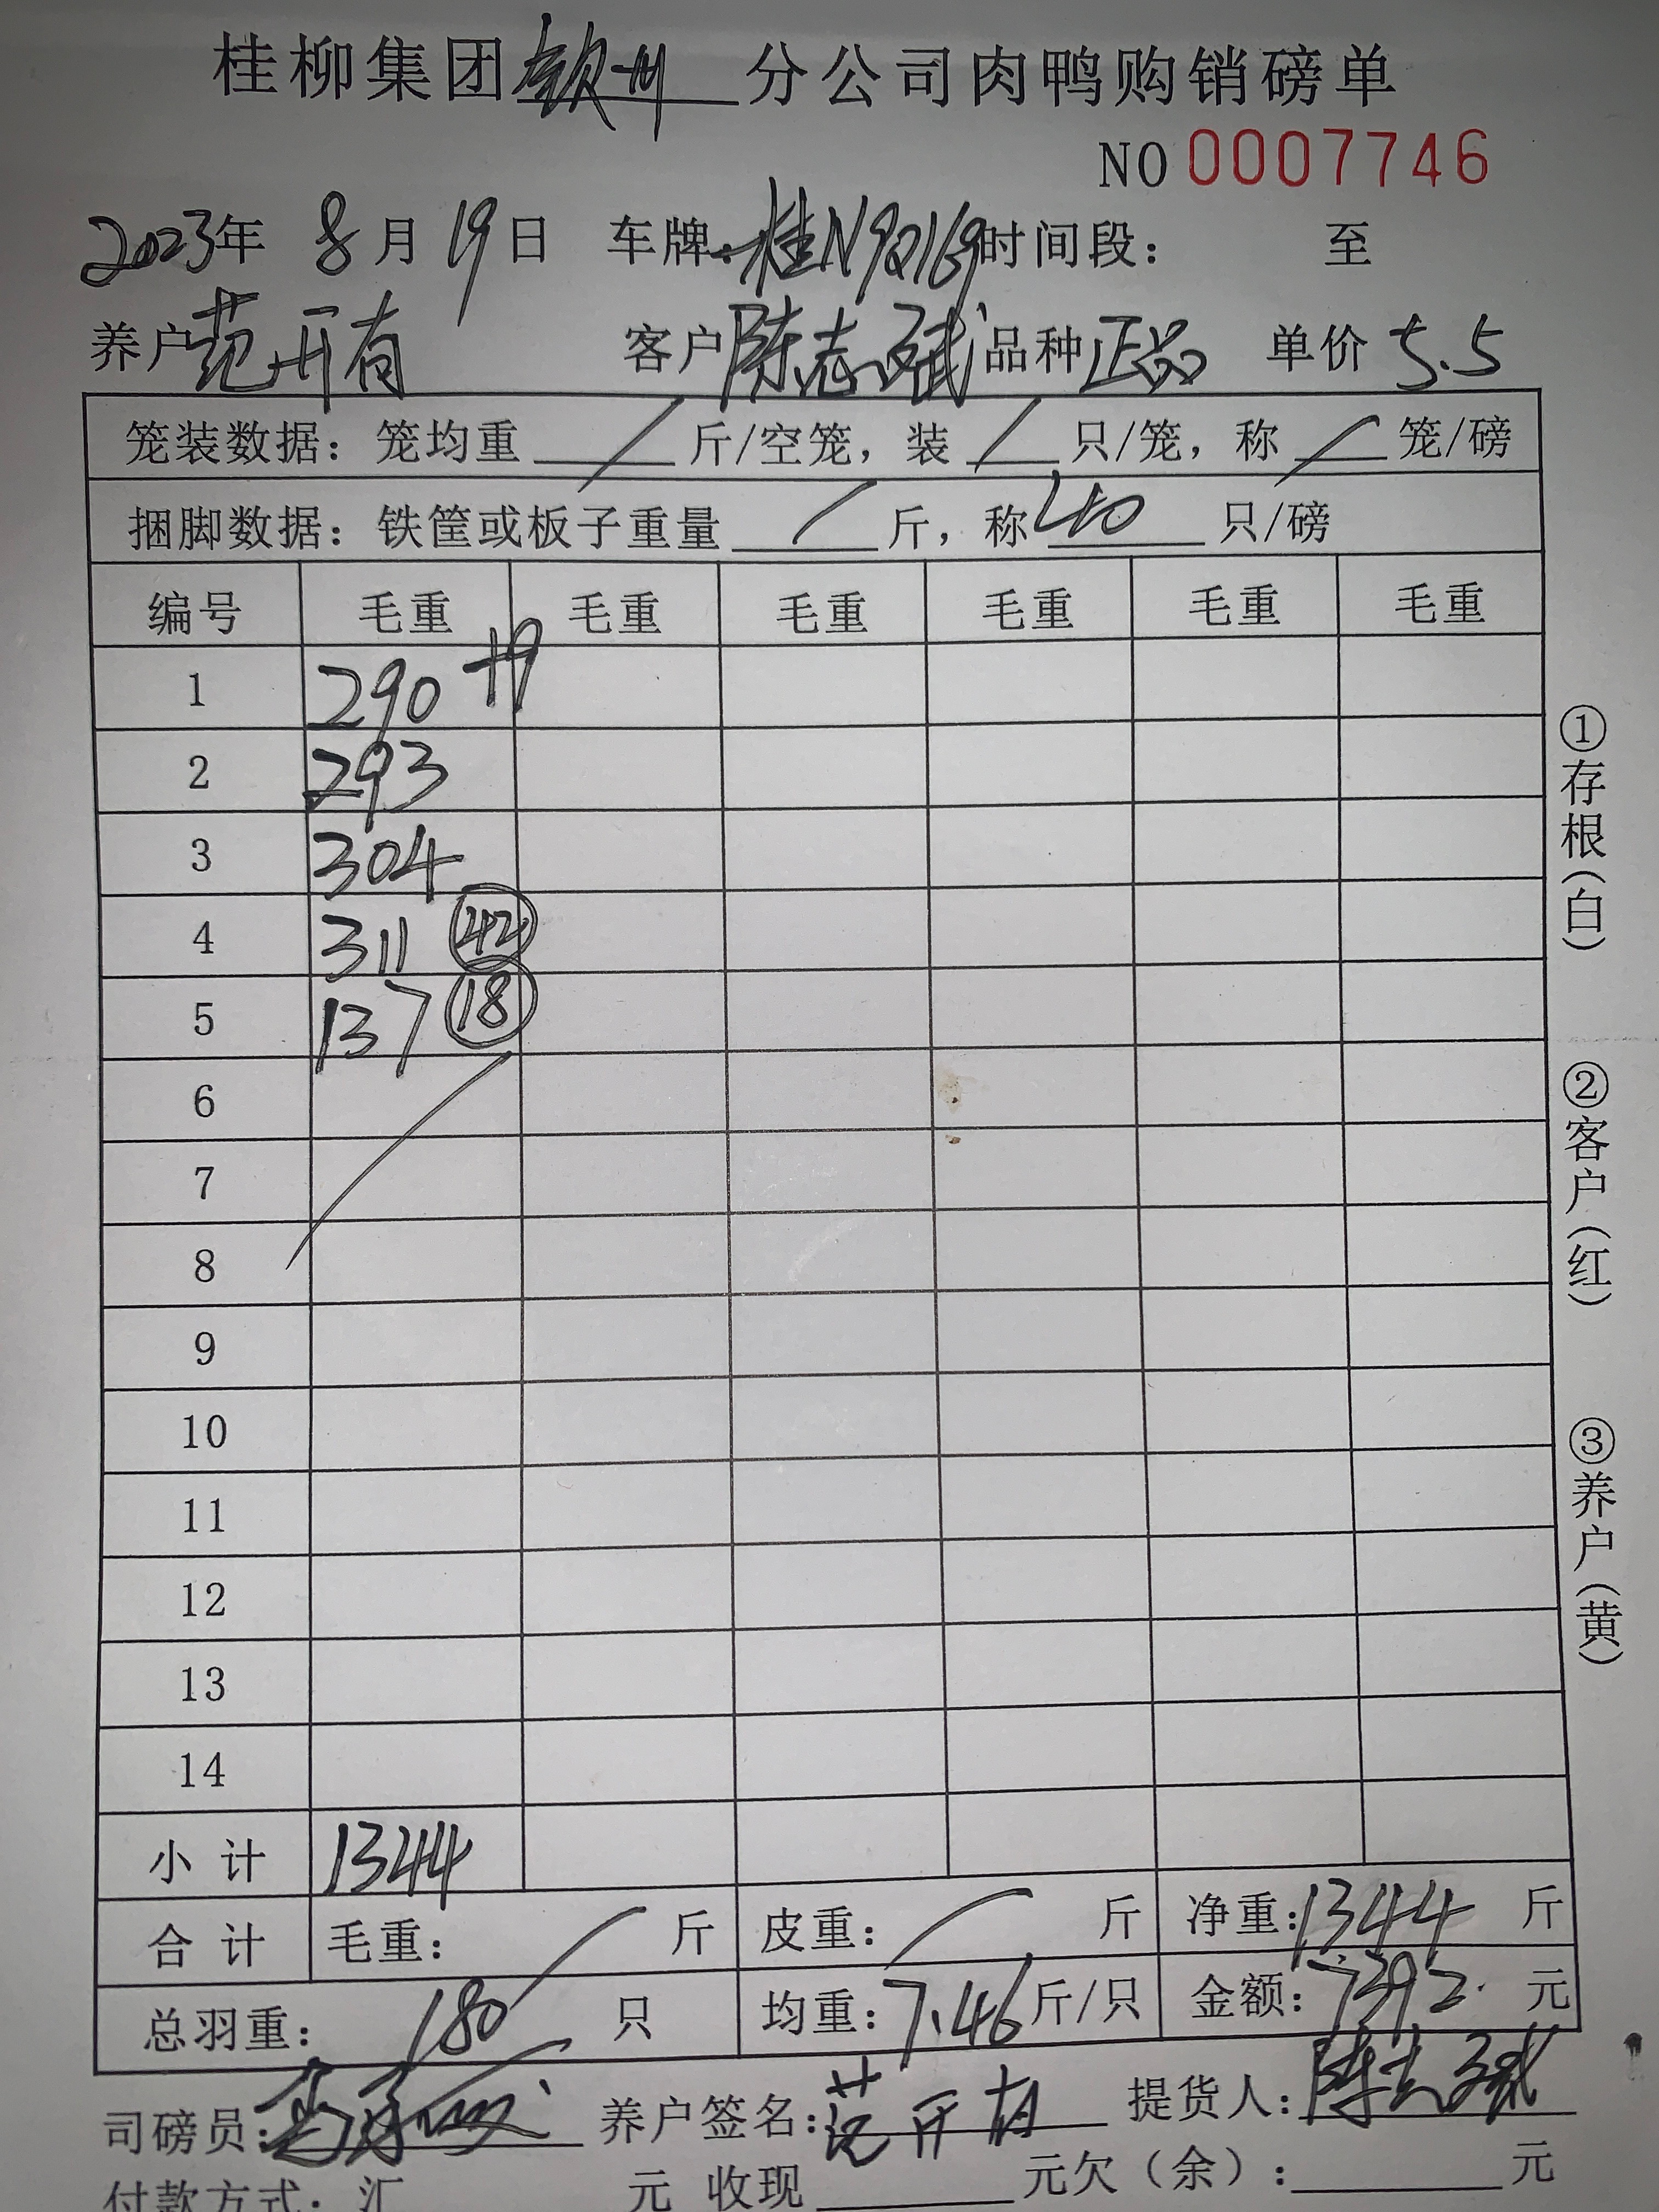 桂柳集团钦州分公司肉鸭购销磅单
NO 0007746
2023年 8月 19日 车牌:桂N9Q169 时间段: 至
养户 范开有 客户 陈志斌 品种 正品 单价 5.5
笼装数据:笼均重 / 斤/空笼,装 / 只/笼,称 / 笼/磅
捆脚数据:铁筐或板子重量 / 斤,称 40 只/磅
编号 毛重 毛重 毛重 毛重 毛重 毛重
1 290
2 293
3 304
4 311 42
5 137 18
6
7
8
9
10
11
12
13
14
小计 1344
合计 毛重: / 斤 皮重: / 斤 净重:1344 斤
总羽重: 180 只 均重:7.46 斤/只 金额:7392. 元
司磅员: 养户签名:范开有 提货人:陈志斌
付款方式:汇 元 收现 元欠(余): 元
①存根(白)
②客户(红)
③养户(黄)